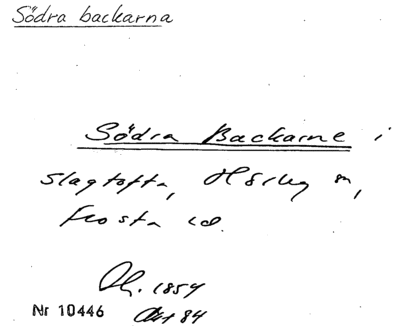 Södra backarna
Södra Backarne i
Slagtofta, Hörby sn,
Frosta hd.
1854
Nr 10446 84